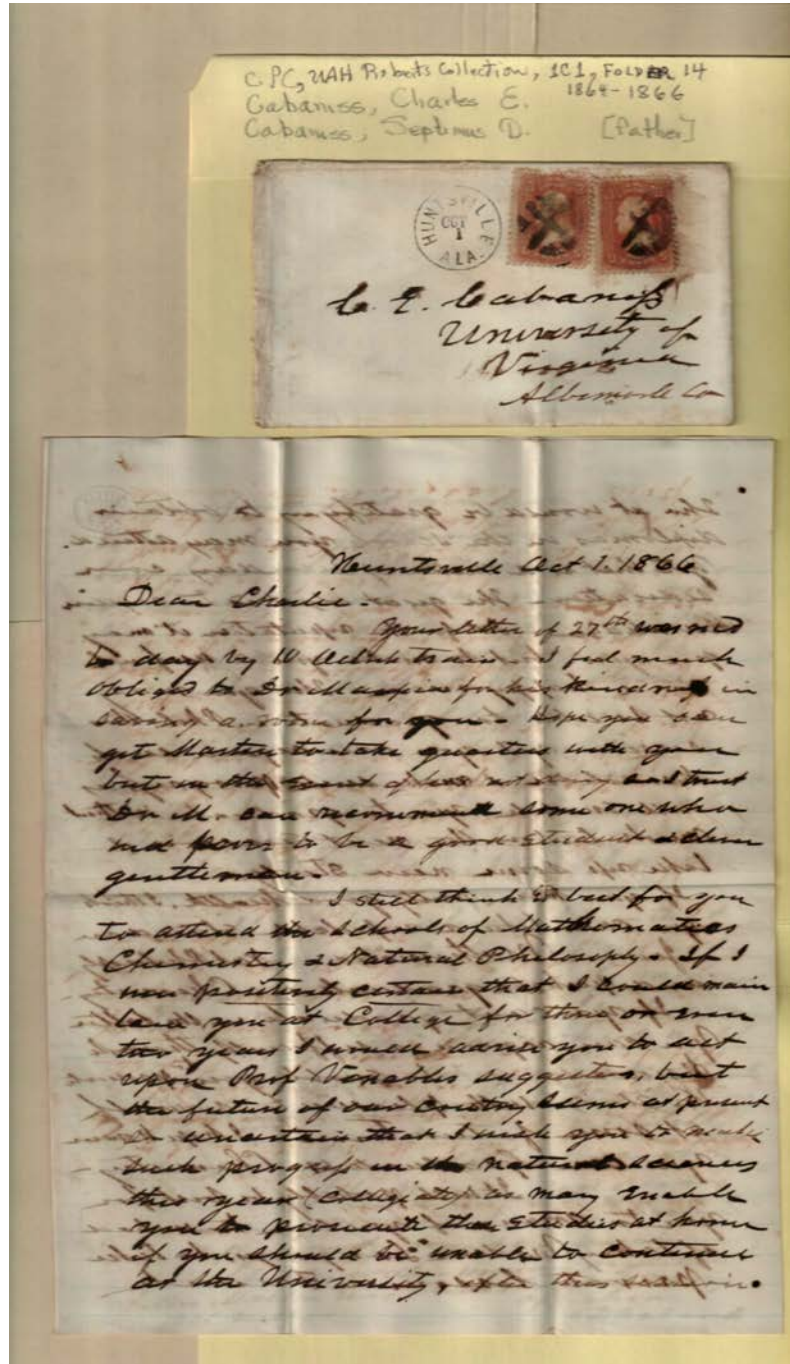 C.PC, UAH Roberts Collection, 1C1, FOLDER 14
Cabaniss, Charles E. 1864-1866
Cabaniss, Septimus D. [father]
HUNTSVILLE
OCT
1
ALA.
C. E. Cabaniss
University of
Virginia
Albemarle Co
Huntsville Oct 1. 1866
Dear Charlie.
Your letter of 27th was recd
to day by 10 Oclock train. I feel much
obliged to Dr for his kindness in
saving a room for you. Hope you can
get to take quarters with you
but in the event of his not doing so I trust
Dr M. can recommend some one who
to be a good student & clever
gentleman.
I still think it best for you
to attend the schools of Mathematics
Chemistry & Natural Philosophy. If I
was positively certain that I could main
tain you at College for three or even
two years I would advise you to act
upon Prof Venables suggestion, but
the future of our Country seems at present
so uncertain that I wish you to make
such progress in the natural sciences
this year (collegiate) as may enable
you to prosecute the studies at home
if you should be unable to continue
at the University, after this session.